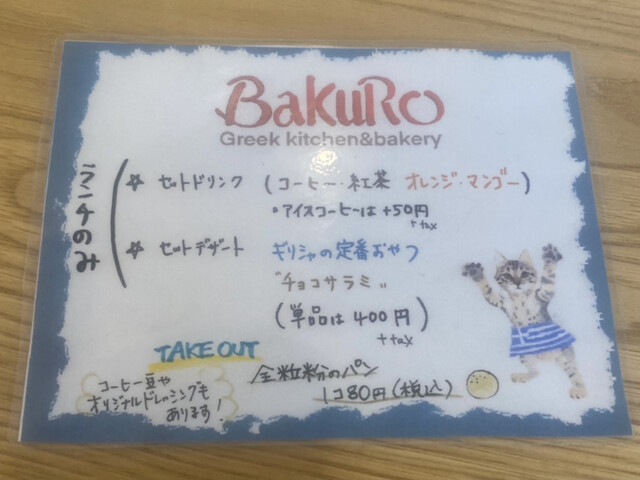 BakuRo
Greek kitchen&bakery
ランチのみ
☆ セットドリンク (コーヒー・紅茶 オレンジ・マンゴー)
・アイスコーヒーは+50円
+tax
☆ セットデザート ギリシャの定番おやつ
"チョコサラミ"
(単品は400円)
+tax
TAKE OUT
コーヒー豆や
オリジナルドレッシングも
あります!
全粒粉のパン
1コ80円(税込)